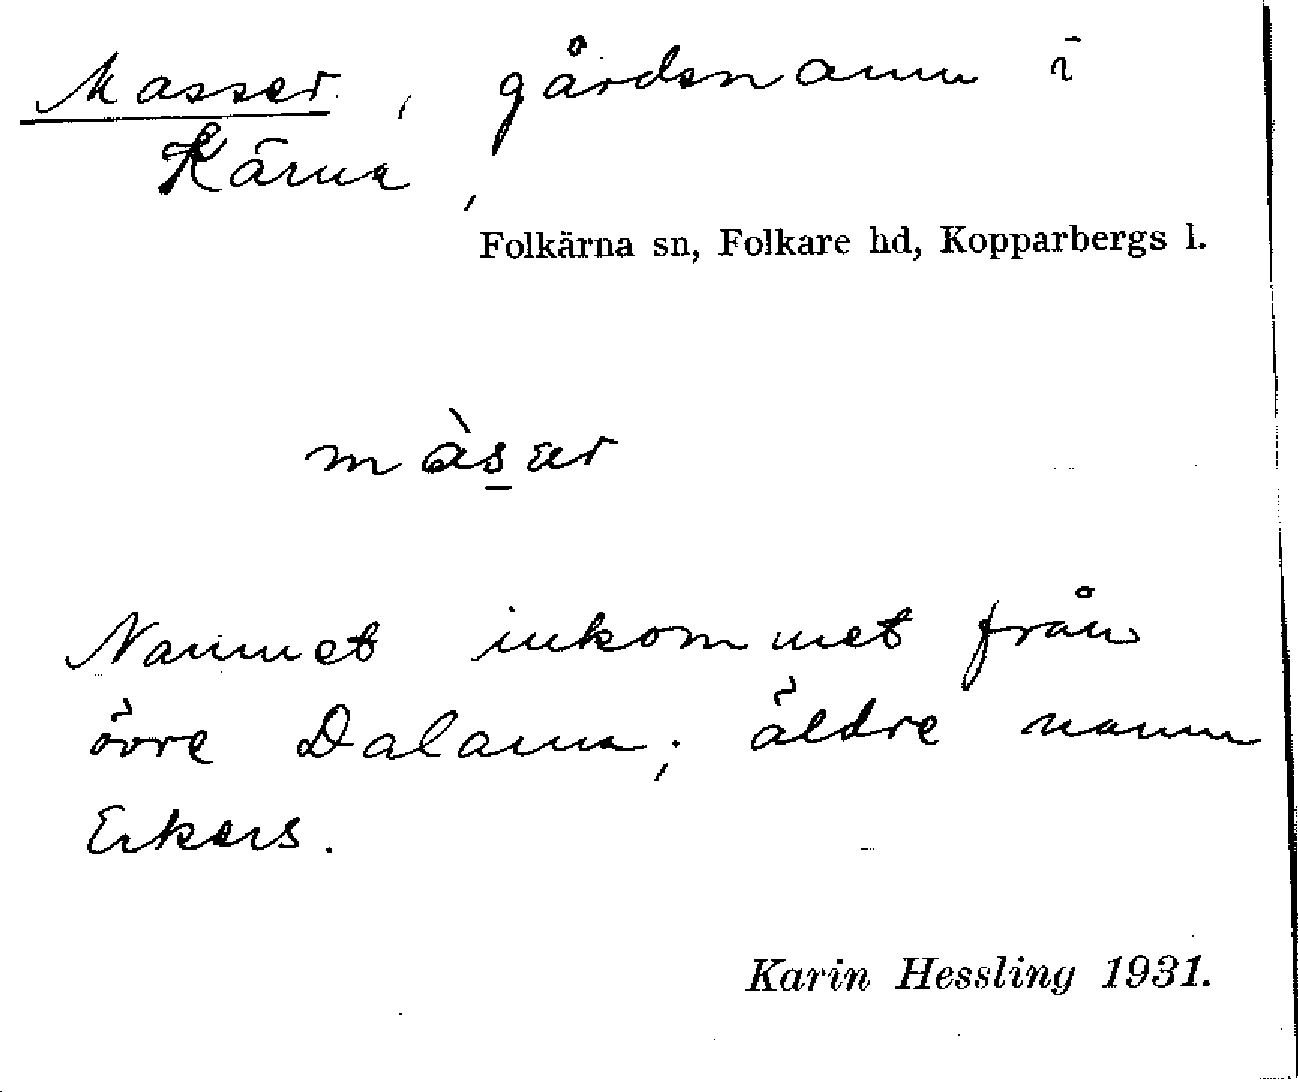 Masser, gårdsnamn i
Kärna,
Folkärna sn, Folkare hd, Kopparbergs l.
màs̲ær
Namnet inkommet från
övre Dalarna; äldre namn
Erkers.
Karin Hessling 1931.